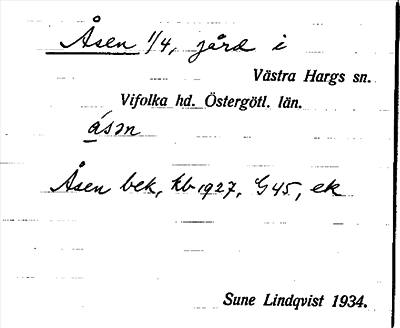 Åsen 1/4, jård i
Västra Hargs sn.
Vifolka hd. Östergötl. län.
åsən
Åsen bek, kb 1927, G45, ek
Sune Lindqvist 1934.